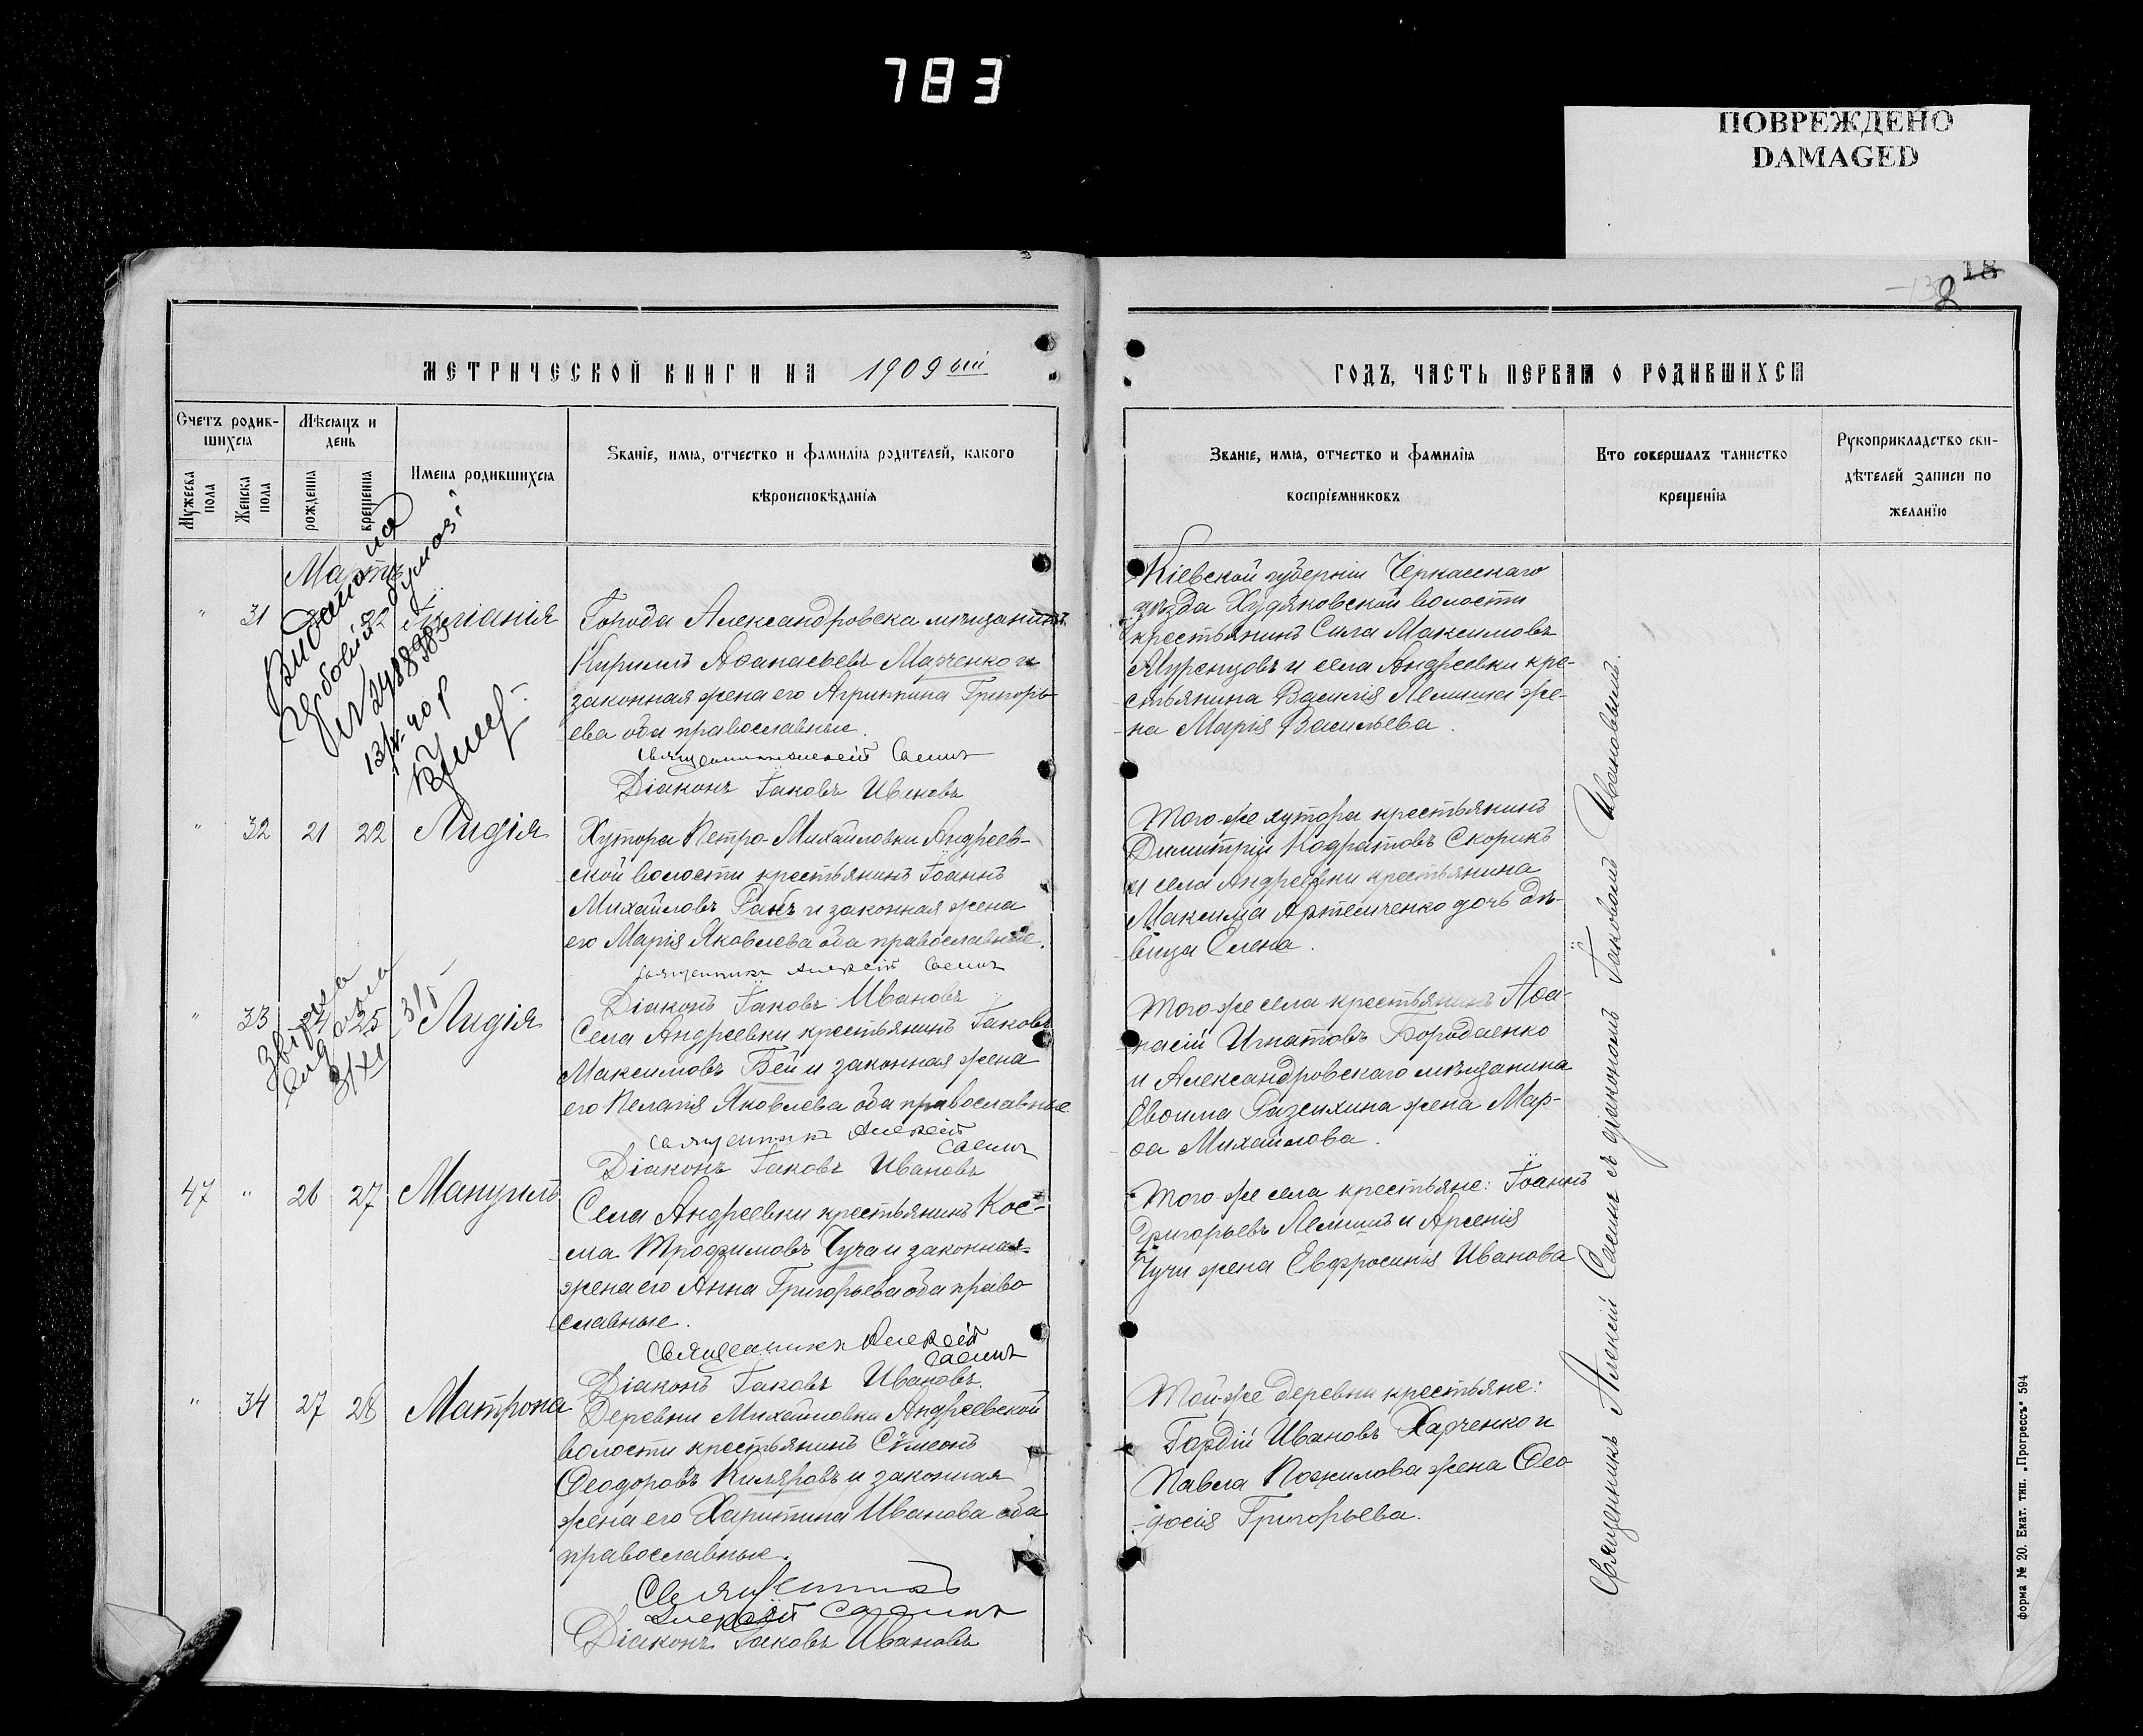 783
ПОВРЕЖДЕНО
DAMAGED
18
2
МЕТРИЧЕСКОЙ КНИГИ НА 1909ый
ГОДЪ, ЧАСТЬ ПЕРВАЯ О РОДИВШИХСЯ
Счетъ родив-
шихся
Мужеска
пола
Женска
пола
Мѣсяцъ и
день
рожденія
крещенія
Имена родившихся
Званіе, имя, отчество и фамилія родителей, какого
вѣроисповѣданія
Званіе, имя, отчество и фамилія
воспріемниковъ
Кто совершалъ таинство
крещенія
Рукоприкладство сви-
дѣтелей записи по
желанію
Мартъ
" 31 22 Іуліанія
Города Александровска мѣщанинъ
Кириллъ Аѳанасьевъ Марченко и
законная жена его Агриппина Григорь-
ева оба православные.
Священникъ Алексій Саенъ
Діаконъ Іаковъ Ивановъ
Кіевской губерніи Черкасскаго
уѣзда Худяковской волости
крестьянинъ Сила Максимовъ
Муренцовъ и села Андреевки кре-
стьянина Василія Лемиша же-
на Марія Васильева.
" 32 21 22 Лидія
Хутора Петро-Михайловки Андреев-
ской волости крестьянинъ Іоаннъ
Михайловъ Ракъ и законная жена
его Марія Яковлева оба православные.
Священникъ Алексій Саенъ
Діаконъ Іаковъ Ивановъ
Того-же хутора крестьянинъ
Димитрій Кодратовъ Скорикъ
и села Андреевки крестьянина
Максима Артемченко дочь дѣ-
вица Елена.
" 33 24 25 Лидія
Села Андреевки крестьянинъ Іаковъ
Максимовъ Бей и законная жена
его Пелагія Яковлева оба православные
Священникъ Алексій
Саенъ
Діаконъ Іаковъ Ивановъ
Того-же села крестьянинъ Аѳа-
насій Игнатовъ Бородаенко
и Александровскаго мѣщанина
Евѳима Разсихина жена Мар-
ѳа Михайлова.
47 " 26 27 Мануилъ
Села Андреевки крестьянинъ Кос-
ма Трофимовъ Чуча и законная
жена его Анна Григорьева оба право
славные.
Священникъ Алексій
Саенъ
Діаконъ Іаковъ Ивановъ.
Того-же села крестьяне: Іоаннъ
Григорьевъ Лемишъ и Арсенія
Чучи жена Евфросинія Иванова
" 34 27 28 Матрона
Деревни Михайловки Андреевской
волости крестьянинъ Сѵмеонъ
Ѳеодоровъ Киляровъ и законная
жена его Харитина Иванова оба
православные.
Священникъ
Алексій Саенъ
Діаконъ Іаковъ Ивановъ
Той-же деревни крестьяне:
Гордій Ивановъ Харченко и
Павла Пожилова жена Ѳео
досія Григорьева.
Священникъ Алексій Саенъ съ діакономъ Іаковомъ Ивановымъ.
форма № 20. Екат. тип. „Прогрессъ" 594